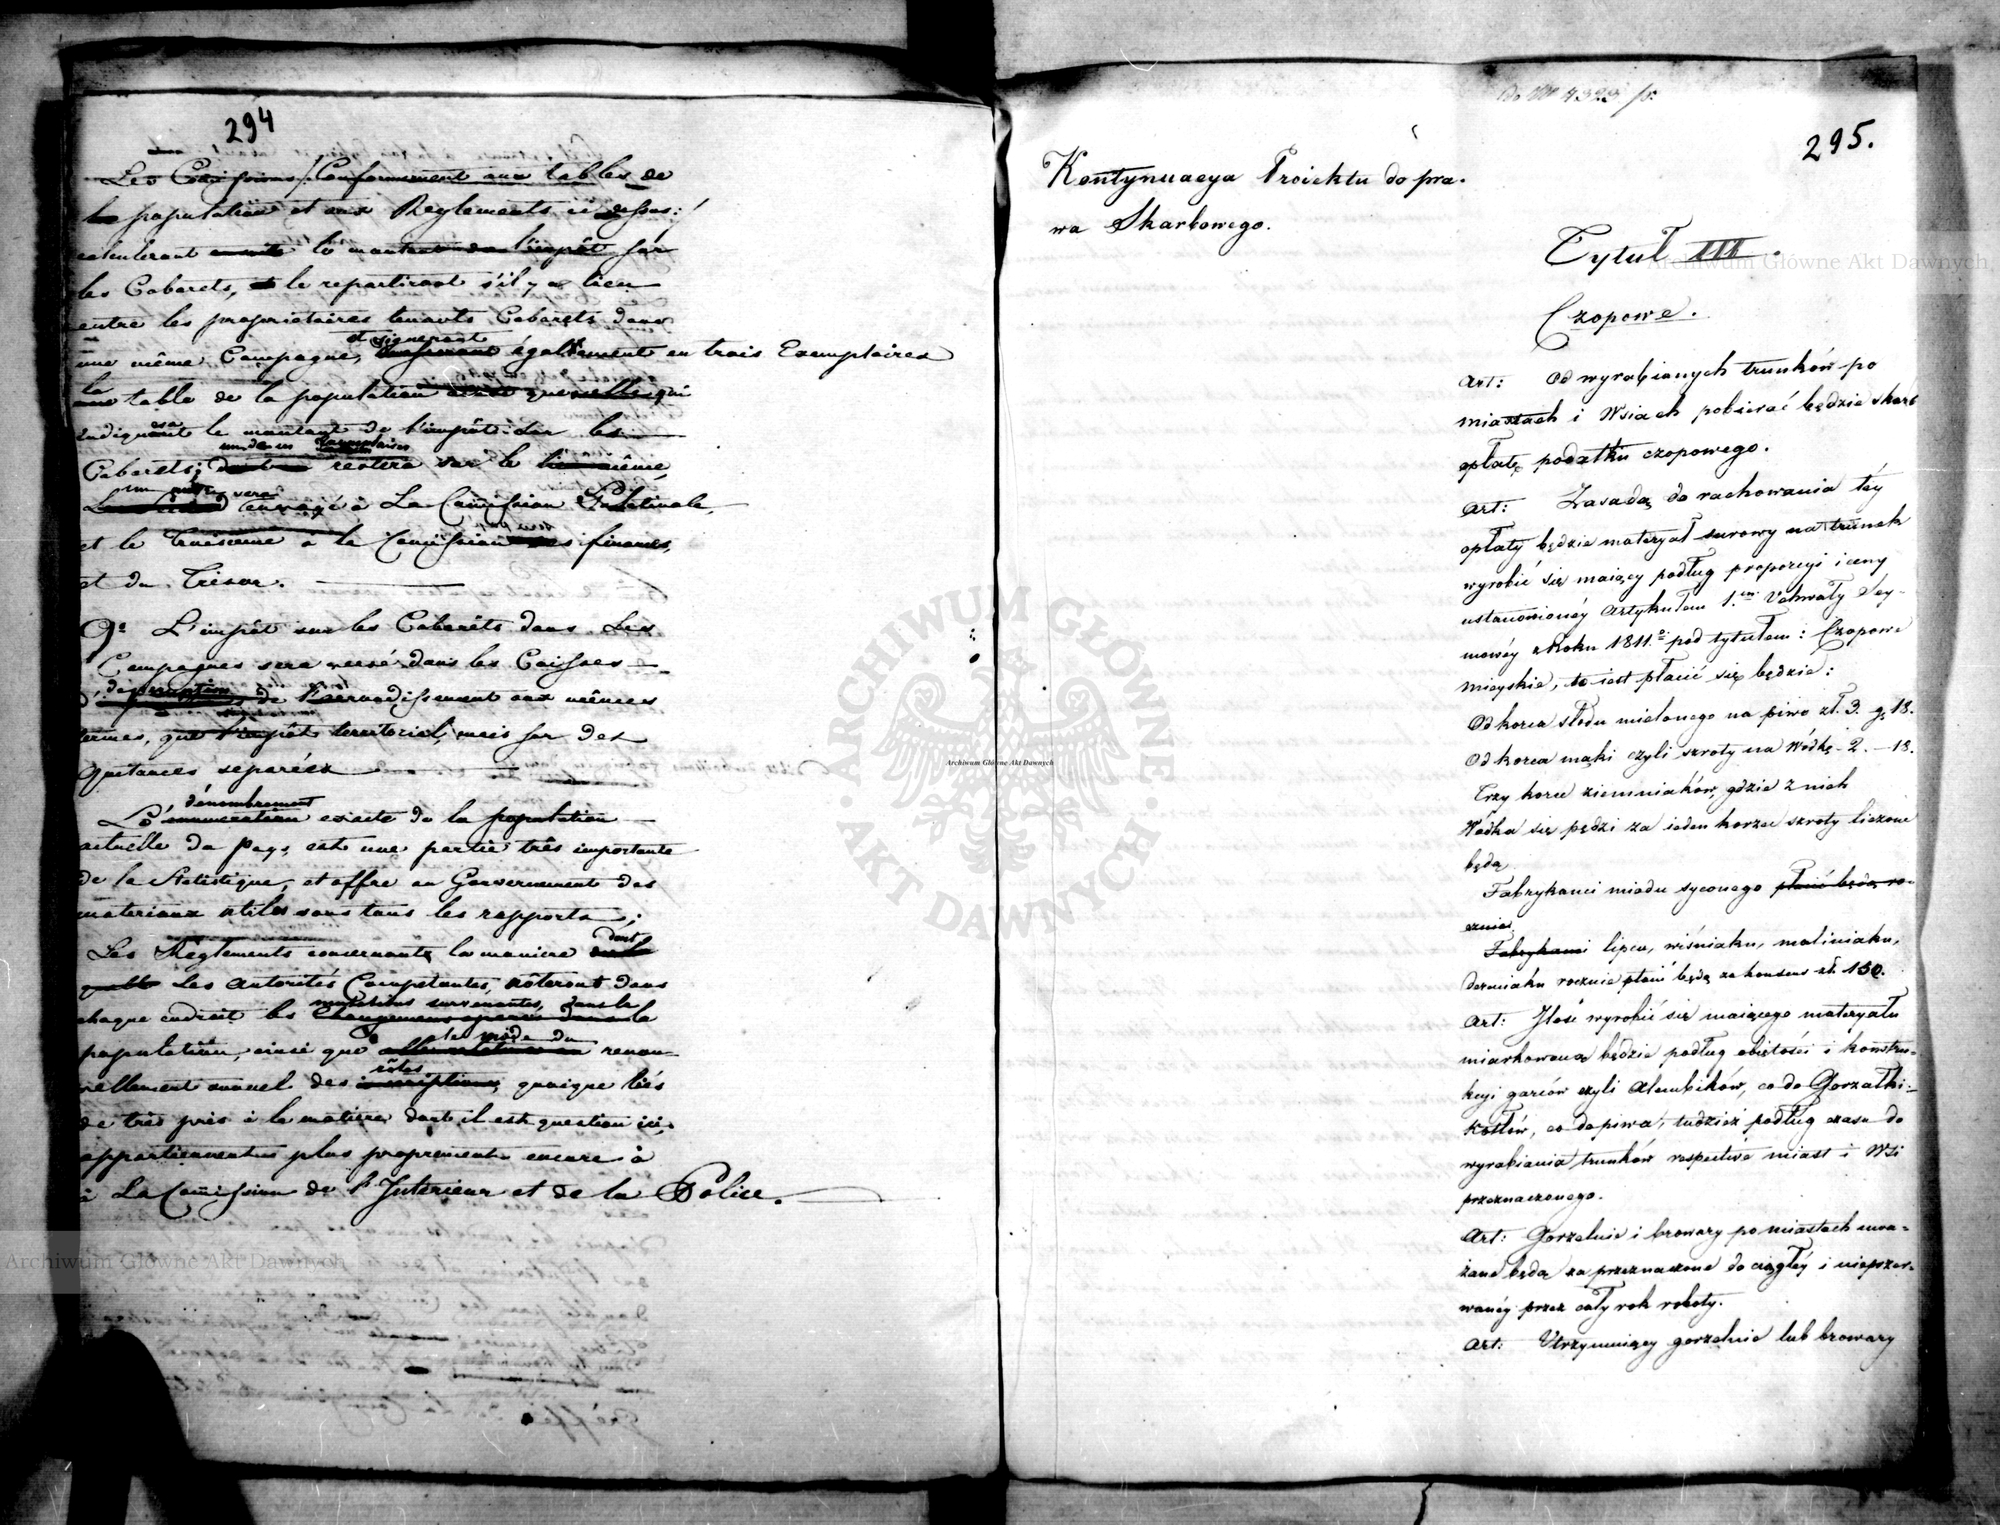 294
Les Caissiers /:Conformement aux tables de
la population et aux Reglements ci dessus:/
calculeront ensuite le montant de l'impôt sur
les Cabarets, et le repartiront s'il y a lieu
entre les proprietaires tenants Cabarets dans
et signeront
une même Campagne, également en trois Exemplaires
la
une table de la population ainsi que celle qui
indiquera le montant de l'impôt sur les
un de ces Exemplaires
Cabarets; restera sur le lieu même,
un autre sera
envoyé à La Commission Palatinale,
et le Troisieme à la Commission des finances,
et du Trésor.
9° L'impôt sur les Cabarets dans Les
Campagnes sera versé dans les Caisses
de l'arrondissement aux mêmes
termes, que l'impôt territorial, mais sur des
Quitances separées
dénombrement
L'énumeration exacte de la population
actuelle du pays, est une partie très importante
de la Statistique, et offre au Gouvernement des
materiaux utiles sous tous les rapports;
dont
Les Réglements concernants la maniere
les Autorités Competantes, noteront dans
mutations survenantes, dans la
chaque endroit les Changemens operés dans la
le mode du
population, ainsi que renou-
rôles
vellement annuel des inscriptions, quoique liés
de très près à la matiere dont il est question ici,
appartiennent plus proprement encore à
à La Commission de l'Interieur et de la Police.
do No 4323 /s:
295.
Kontynuacya Proiektu do pra-
wa Skarbowego.
Tytuł III.
Czopowe.
Art: Od wyrabianych trunków po
miastach i Wsiach pobierać będzie skarb
opłatę podatku czopowego.
Art: Zasadą do rachowania téy
opłaty będzie materyał surowy na trunek
wyrobić się maiący podług proporcyi i ceny
ustanowionéy Artykułem 1.ym Uchwały Sey-
mowéy z Roku 1811.o pod tytułem: Czopowe
Mieyskie, to iest płacić się będzie:
Od korca słodu mielonego na piwo zł. 3. gr 18.
Od korca mąki czyli szroty na Wódkę - 2. - 18.
Trzy korce ziemniaków, gdzie z nich
Wódka się pędzi za ieden korzec szroty liczone
będą
Fabrykanci miodu syconego płacić będą ro-
cznie
Fabrykanci lipcu, wiśniaku, maliniaku,
dereniaku rocznie płacić będą za konsens zł. 150.
Art: Ilość wyrobić się maiącego materyału
miarkowana będzie podług obiętości i konstru-
kcyi garców czyli Alembików, co do Gorzałki;
Kotłów, co do piwa, tudzież podług czasu do
wyrabiania trunków respective miast i Wsi
przeznaczonego.
Art: Gorzelnie i browary po miastach uwa-
żane będą za przeznaczone do ciągłéy i nieprzer-
wanéy przez cały rok roboty.
Art: Utrzymuiący gorzelnie lub browary
Archiwum Główne Akt Dawnych
ARCHIWUM GŁÓWNE AKT DAWNYCH
Archiwum Główne Akt Dawnych
Archiwum Główne Akt Dawnych